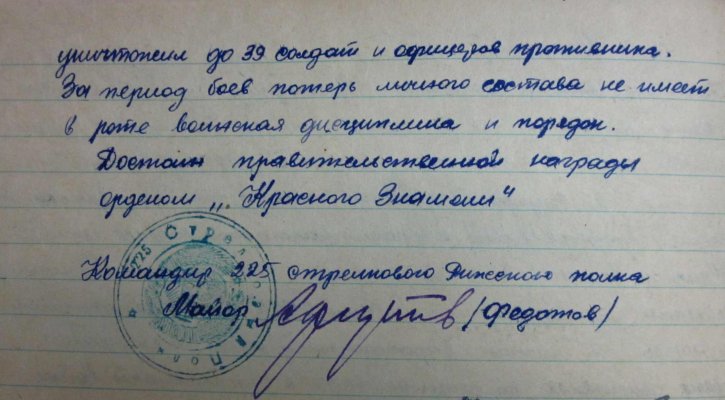 уничтожил до 39 солдат и офицеров противника.
За период боев потерь личного состава не имеет
в роте воинская дисциплина и порядок.
Достоин правительственной награды
орденом „Красного Знамени"
225 Стрел
Полк
Командир 225 стрелкового Рижского полка
Майор (Федотов)